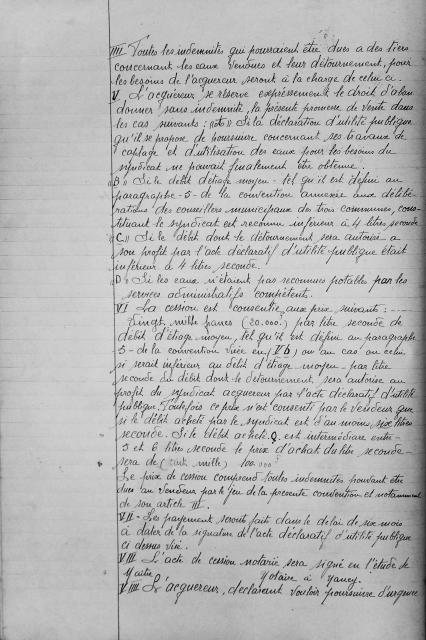 IIII Toutes les indemnités qui pourraient être dues a des tiers
concernant les eaux vendues et leur détournement, pour
les besoins de l'acquereur seront à la charge de celui ci.
V L'acquéreur se réserve expressément le droit d'aban
donner sans indemnité, la présente promesse de vente dans
les cas suivants: Si la déclaration d'utilité publique
qu'il se propose de poursuivre concernant ses travaux de
captage et d'utilisation des eaux pour les besoins du
syndicat ne pouvait finalement être obtenue.
B" Si le débit d'étiage moyen - tel qu'il est défini au
paragraphe - 5 - de la convention annexée aux délibé-
rations des conseillers municipaux des trois communes, cons-
tituant le syndicat est reconnu inférieur à 4 litres seconde
C" Si le débit dont le détournement sera autorisé a
son profit par l'acte déclaratif d'utilité publique était
inférieur à 4 litres seconde.
D" Si les eaux n'étaient pas reconnues potables par les
services administratifs compétents.
VI La cession est consentie aux prix suivants:
Vingt mille francs (20.000) par litre seconde de
débit d'étiage moyen, tel qu'il est défini au paragraphe
5 - de la convention visée en (V b) ou au cas ou celui
si serait inférieur au débit d'étiage moyen - par litre
seconde du débit dont le détournement, sera autorisé au
profit du syndicat acquereur par l'acte déclaratif d'utilité
publique. Toutefois ce prix n'est consenti par le vendeur que
si le débit acheté par le syndicat est d'au moins six litres
seconde. Si le débit acheté Q est intermédiaire entre -
5 et 6 litres seconde le prix d'achat du litre seconde -
sera de (cent mille) 100.000
Le prix de cession comprend toutes indemnités pouvant être
dues au vendeur par le jeu de la présente convention et notamment
de son article III.
VII - Les payement seront fait dans le délai de six mois
à dater de la signature de l'acte déclaratif d'utilité publique
ci dessus visé.
VIII L'acte de cession notarié sera signé en l'étude de
Maitre Notaire à Nancy.
VIIII L'acquereur, déclarant vouloir poursuivre d'urgence